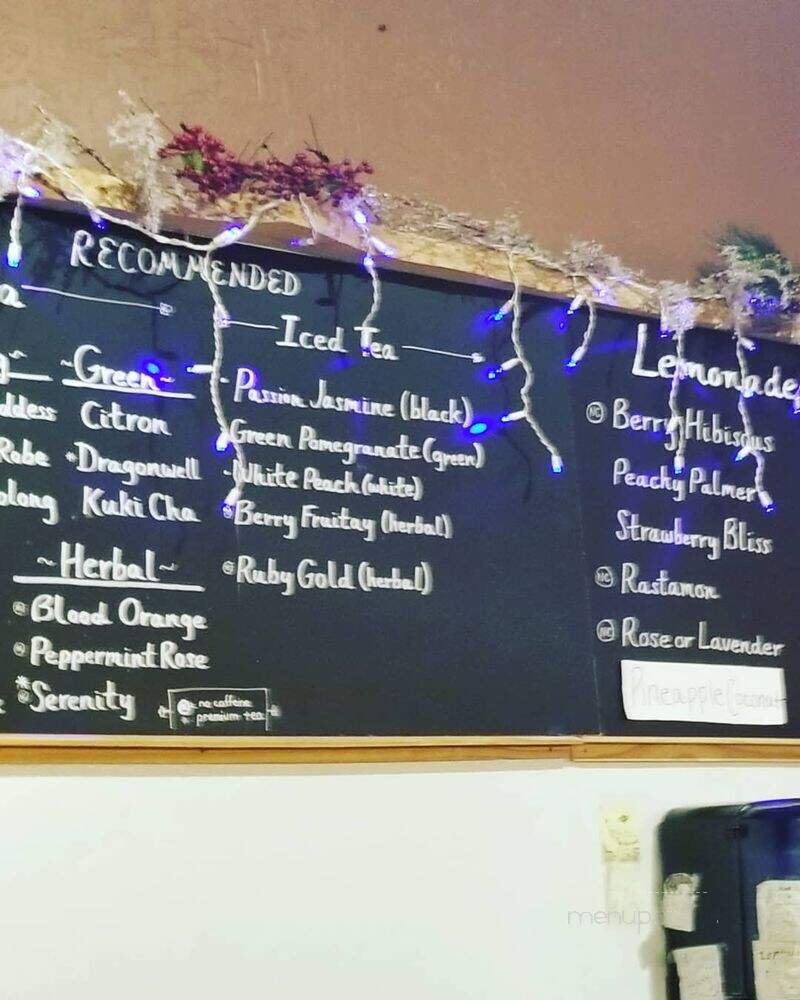 RECOMMENDED
a
~Green~
Citron
*Dragonwell
Kuki Cha
ddess
Robe
olong
~Herbal~
NC Blood Orange
NC Peppermint Rose
*NC Serenity
NC no caffeine
* premium tea
Iced Tea
Passion Jasmine (black)
Green Pomegranate (green)
White Peach (white)
NC Berry Fruitay (herbal)
NC Ruby Gold (herbal)
Lemonade
NC Berry Hibiscus
Peachy Palmer
Strawberry Bliss
NC Rastamon
NC Rose or Lavender
Pineapple Coconut
menup